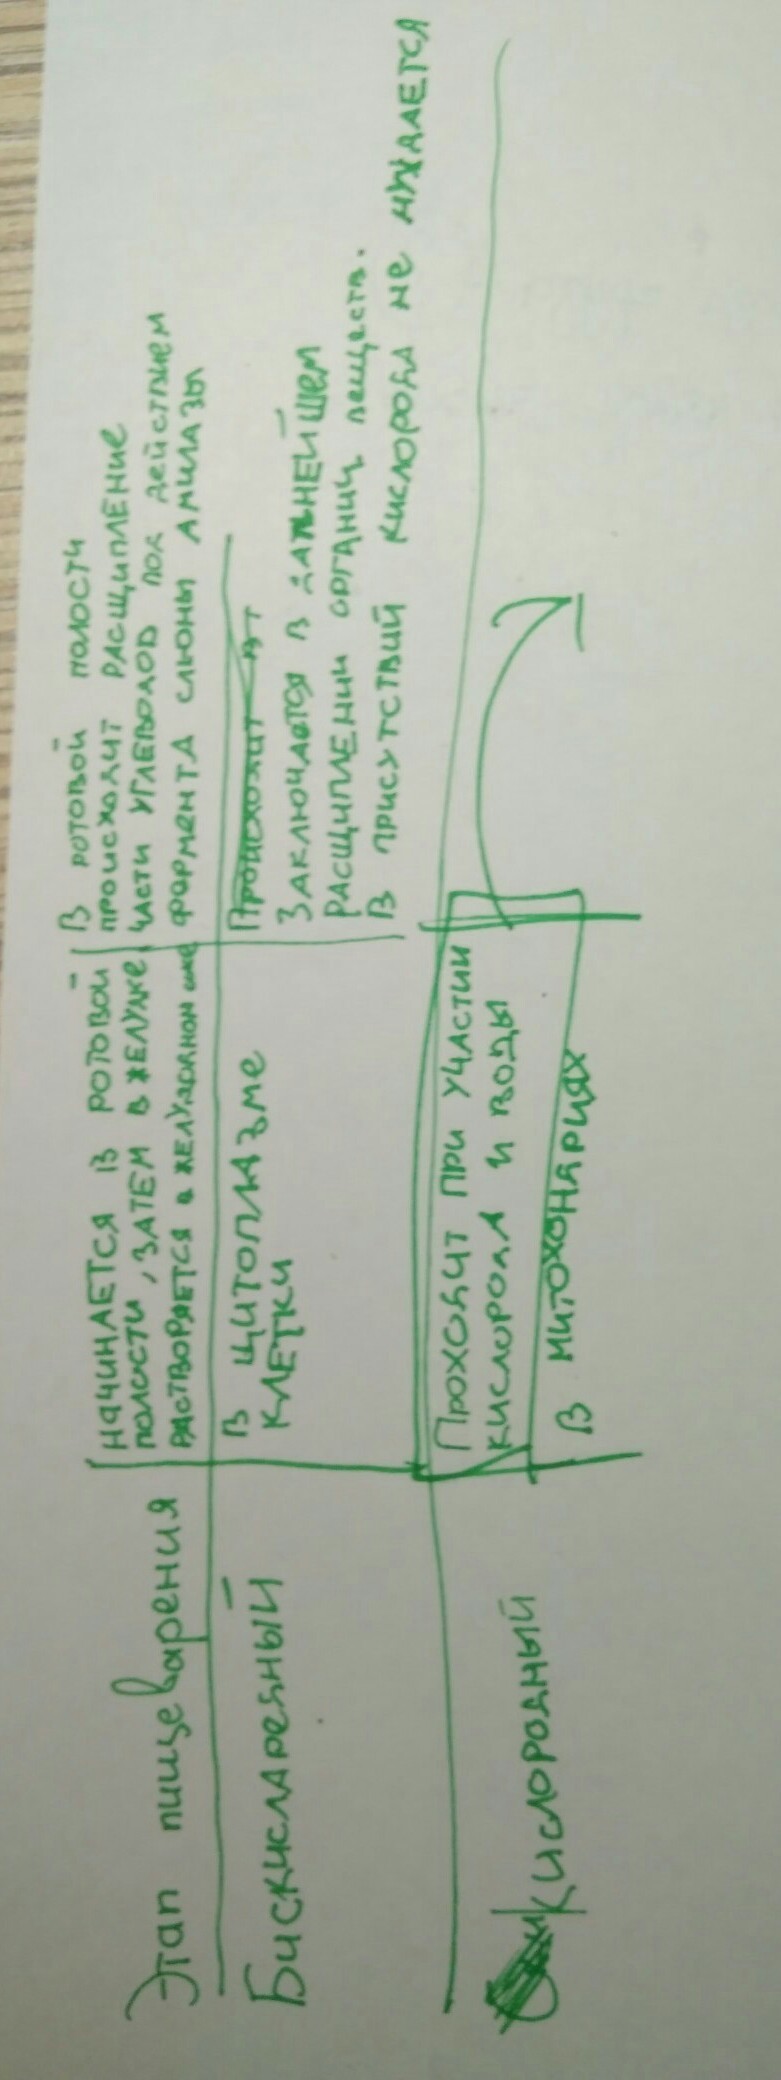 Этап пищеварения
НАЧИНАЕТСЯ В РОТОВОЙ
ПОЛОСТИ, ЗАТЕМ В ЖЕЛУДКЕ,
РАСТВОРЯЕТСЯ В ЖЕЛУДОЧНОМ СОКЕ
В РОТОВОЙ ПОЛОСТИ
ПРОИСХОДИТ РАСЩИПЛЕНИЕ
ЧАСТИ УГЛЕВОДОВ ПОД ДЕЙСТВИЕМ
ФЕРМЕНТА СЛЮНЫ АМИЛАЗЫ
Бискислародный
В ЦИТОПЛАЗМЕ
КЛЕТКИ
ПРОИСХОДИТ
ЗАКЛЮЧАЕТСЯ В ДАЛЬНЕЙШЕМ
РАСЩИПЛЕНИИ ОРГАНИЧ ВЕЩЕСТВ.
В ПРИСУТСТВИЙ КИСЛОРОДА НЕ НУЖДАЕТСЯ
КИСЛОРОДНЫЙ
ПРОХОДИТ ПРИ УЧАСТИИ
КИСЛОРОДА И ВОДЫ
В МИТОХОНДРИЯХ